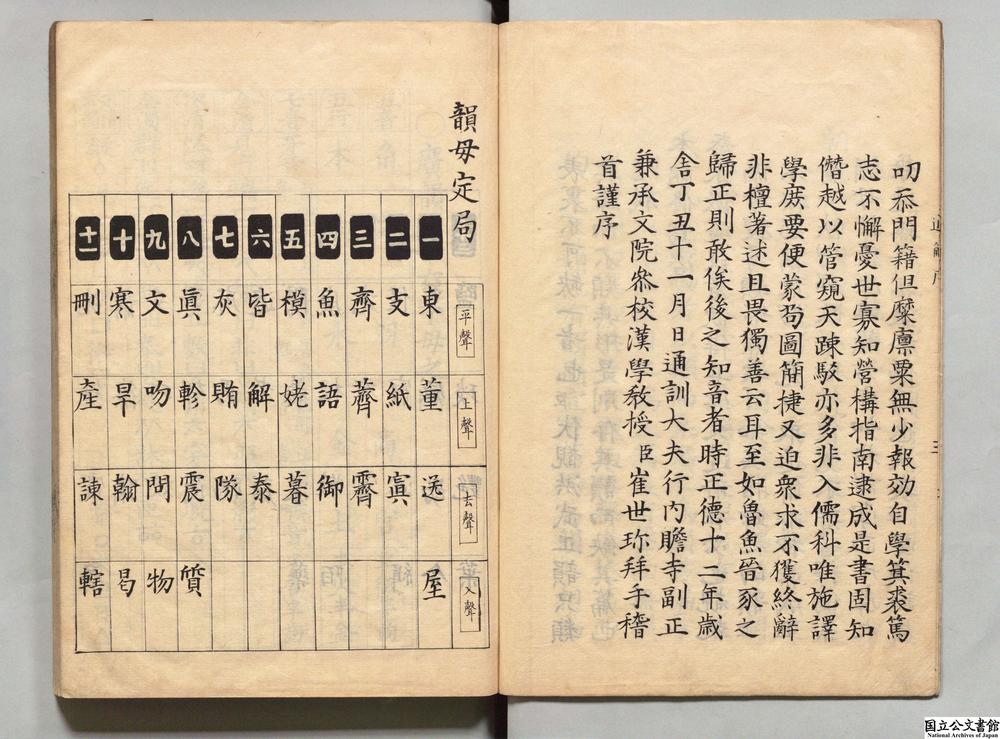 叨忝門籍但糜廩粟無少報効自學箕裘篤
志不懈憂世寡知營構指南逮成是書固知
僭越以管窺天踈駁亦多非入儒科唯施譯
學庶要便蒙芻圖簡捷又迫衆求不獲終辭
非檀著述且畏獨善云耳至如魯魚晉豕之
歸正則敢俟後之知音者時正德十二年歲
舍丁丑十一月日通訓大夫行內贍寺副正
兼承文院叅校漢學敎授臣崔世珎拜手稽
首謹序
韻母定局
平聲 上聲 去聲 入聲
一 東 董 送 屋
二 支 紙 寘
三 齊 薺 霽
四 魚 語 御
五 模 姥 暮
六 皆 解 泰
七 灰 賄 隊
八 眞 軫 震 質
九 文 吻 問 物
十 寒 旱 翰 曷
十一 刪 產 諫 轄
国立公文書館
National Archives of Japan